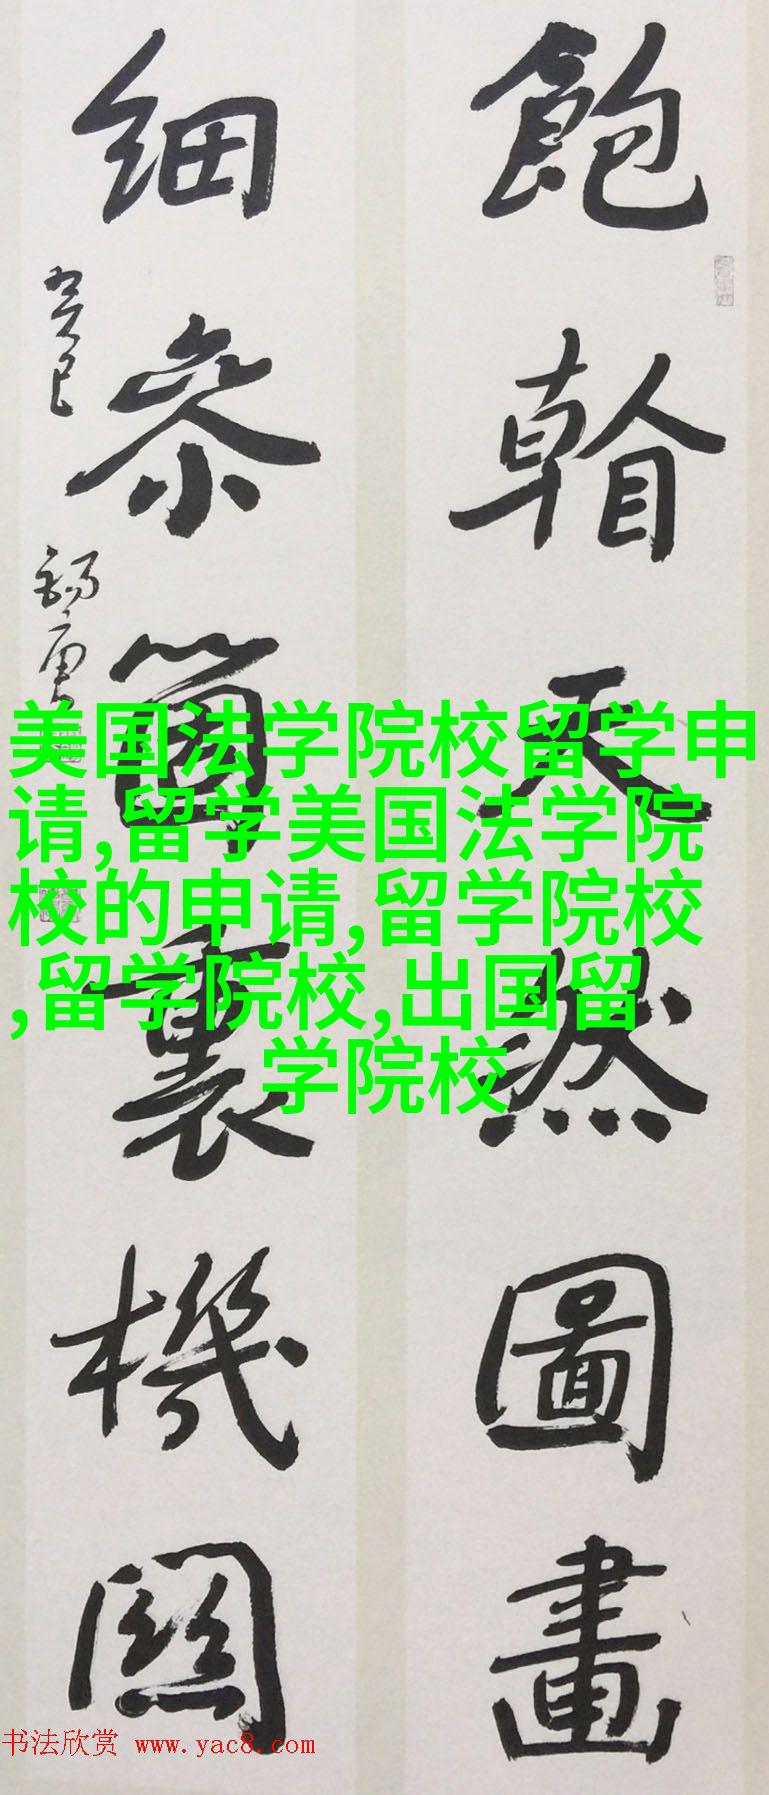 飽天然圖畫
細參箇裏機關
癸巳
美国法学院校留学申
请,留学美国法学院
校的申请,留学院校
,留学院校,出国留
学院校
书法欣赏 www.yac8.com